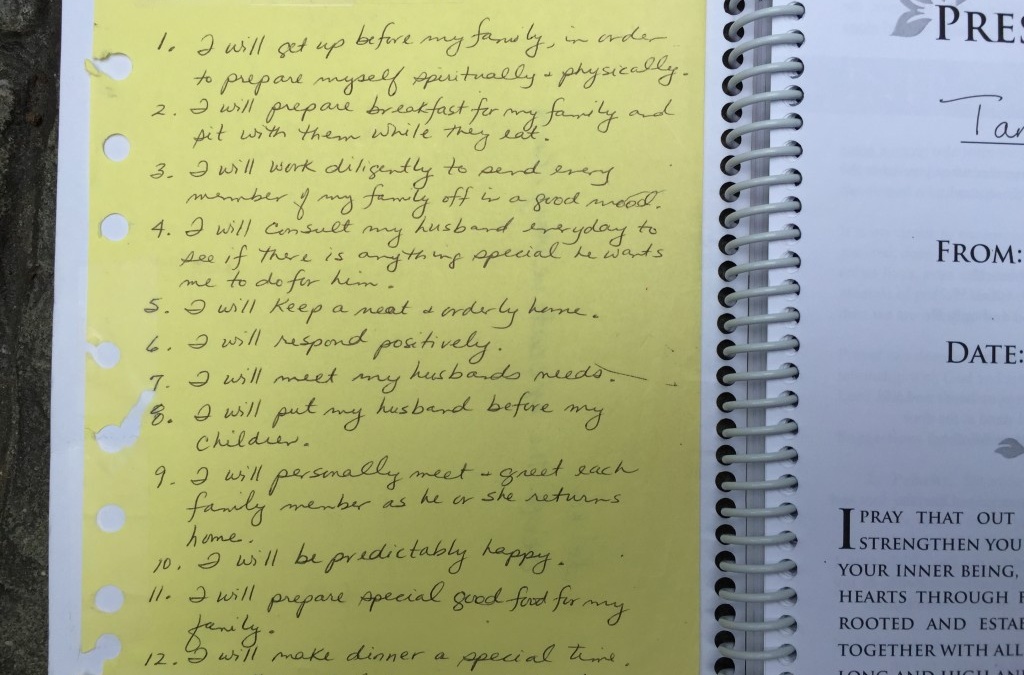 1. I will get up before my family, in order
to prepare myself spiritually + physically.
2. I will prepare breakfast for my family and
sit with them while they eat.
3. I will work diligently to send every
member of my family off in a good mood.
4. I will consult my husband everyday to
see if there is anything special he wants
me to do for him.
5. I will keep a neat & orderly home.
6. I will respond positively.
7. I will meet my husbands needs.
8. I will put my husband before my
children.
9. I will personally meet & greet each
family member as he or she returns
home.
10. I will be predictably happy.
11. I will prepare special good food for my
family.
12. I will make dinner a special time.
PRES
Tar
FROM:
DATE:
I PRAY THAT OUT
STRENGTHEN YOU
YOUR INNER BEING,
HEARTS THROUGH F
ROOTED AND ESTAB
TOGETHER WITH ALL
LONG AND HIGH AN